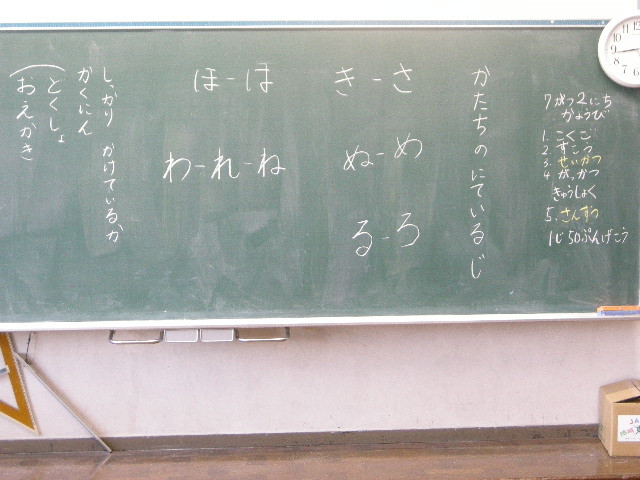 7がつ2にち
かようび
1. こくご
2. ずこう
3. せいかつ
4. がっかつ
きゅうしょく
5. さんすう
1じ50ぷんげこう
かたちの にているじ
き-さ
ぬ-め
る-ろ
ほ-は
わ-れ-ね
しっかり かけているか
かくにん
どくしょ
おえかき